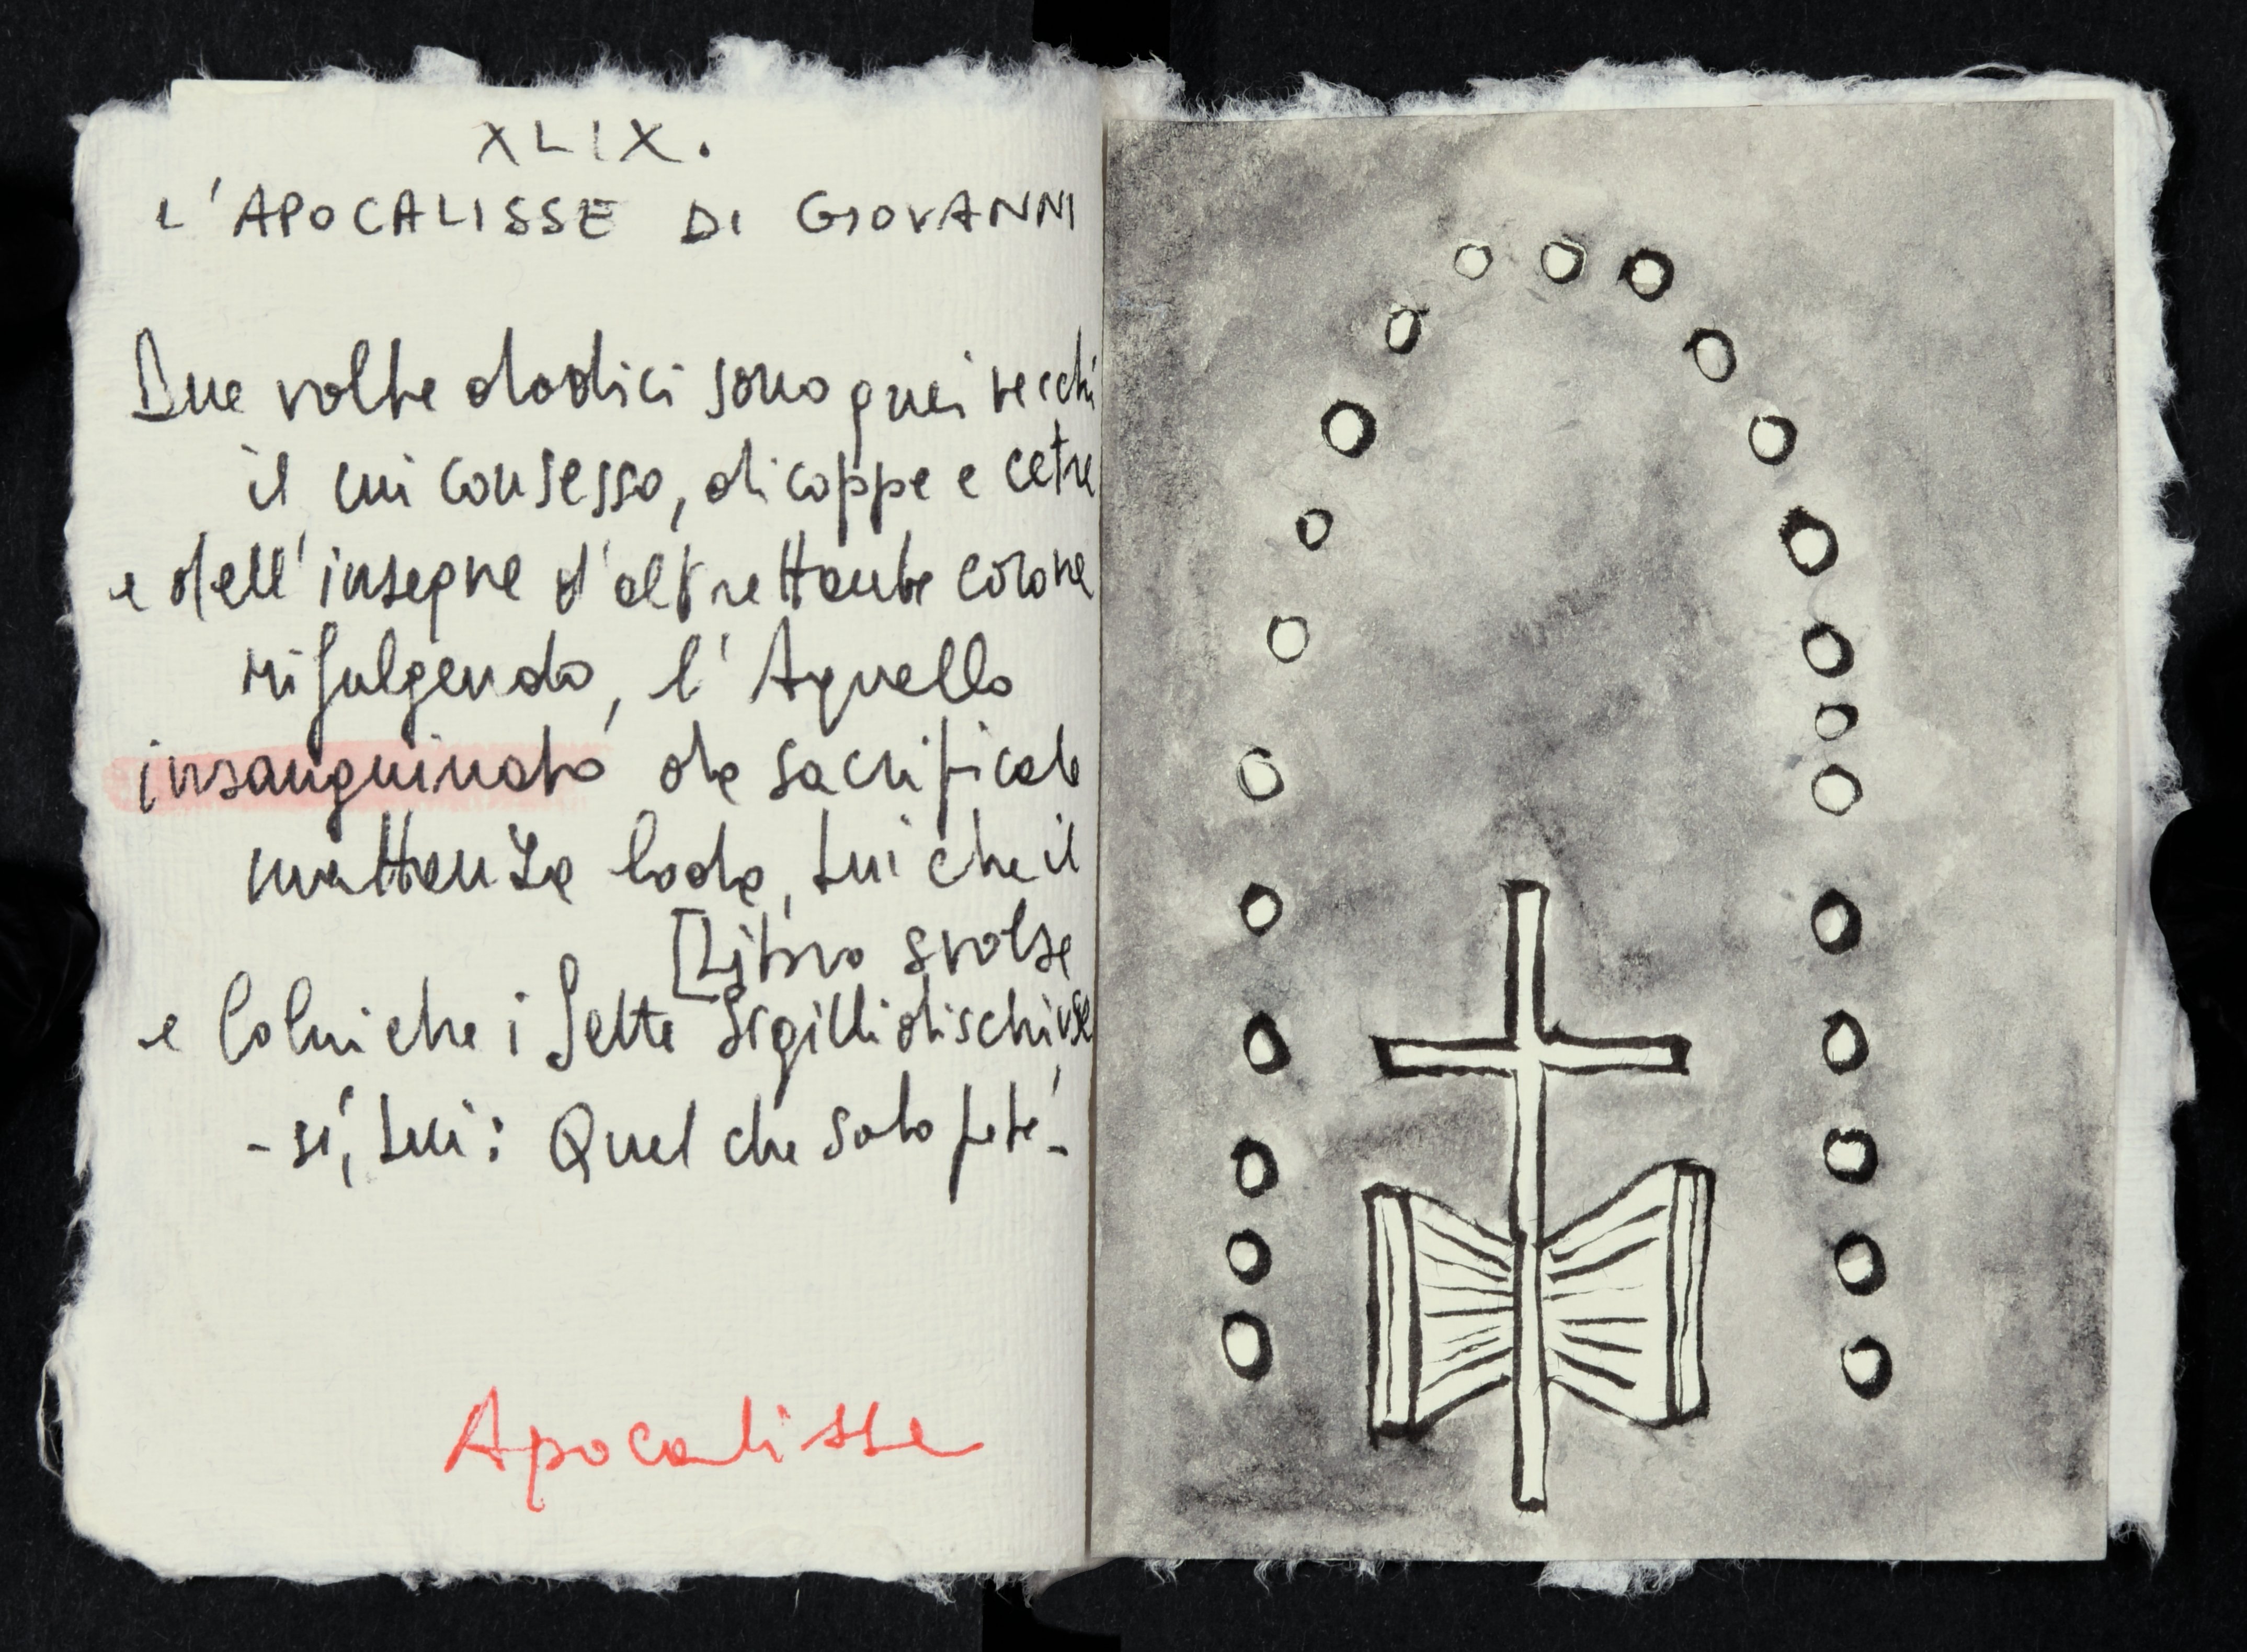 XLIX.
L'APOCALISSE DI GIOVANNI
Due volte dodici sono quei vecchi
il cui consesso, di coppe e cetre
e dell'insegne d'altrettante corone
rifulgendo, l'Agnello
insanguinato da sacrificale
mattanza loda, Lui che il
[Libro svolse
e Colui che i Sette Sigilli dischiuse
- sì, Lui: Quel che solo poté -
Apocalisse